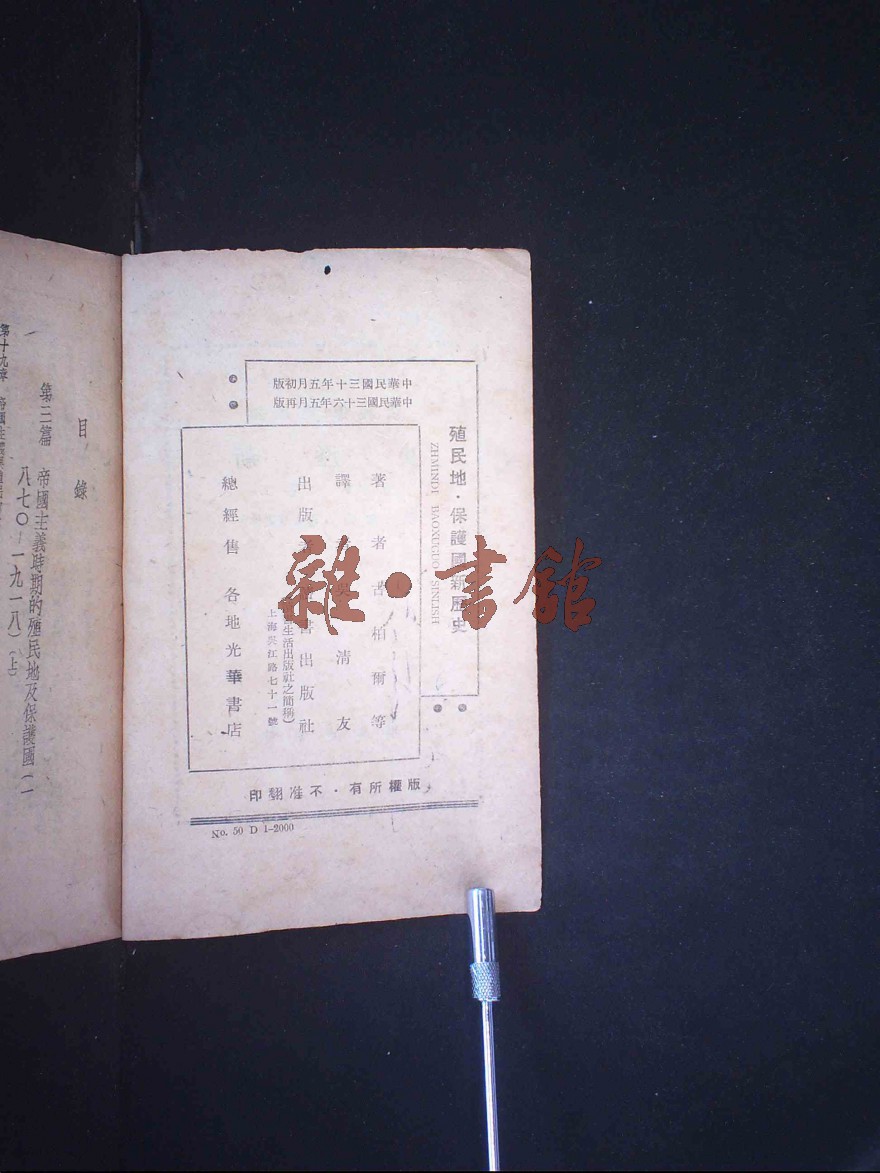 中華民國三十年五月初版
中華民國三十六年五月再版
殖民地・保護國新歷史
ZHMINDI BAOXUGUO SINLISH
著者 古柏爾等
譯 吳清友
出版 書出版社
生活出版社之簡稱)
上海吳江路七十一號
總經售 各地光華書店
版權所有・不准翻印
No. 50 D 1-2000
雜・書館
目錄
第三篇 帝國主義時期的殖民地及保護國(一
八七〇-一九一八)(上)
第十九章